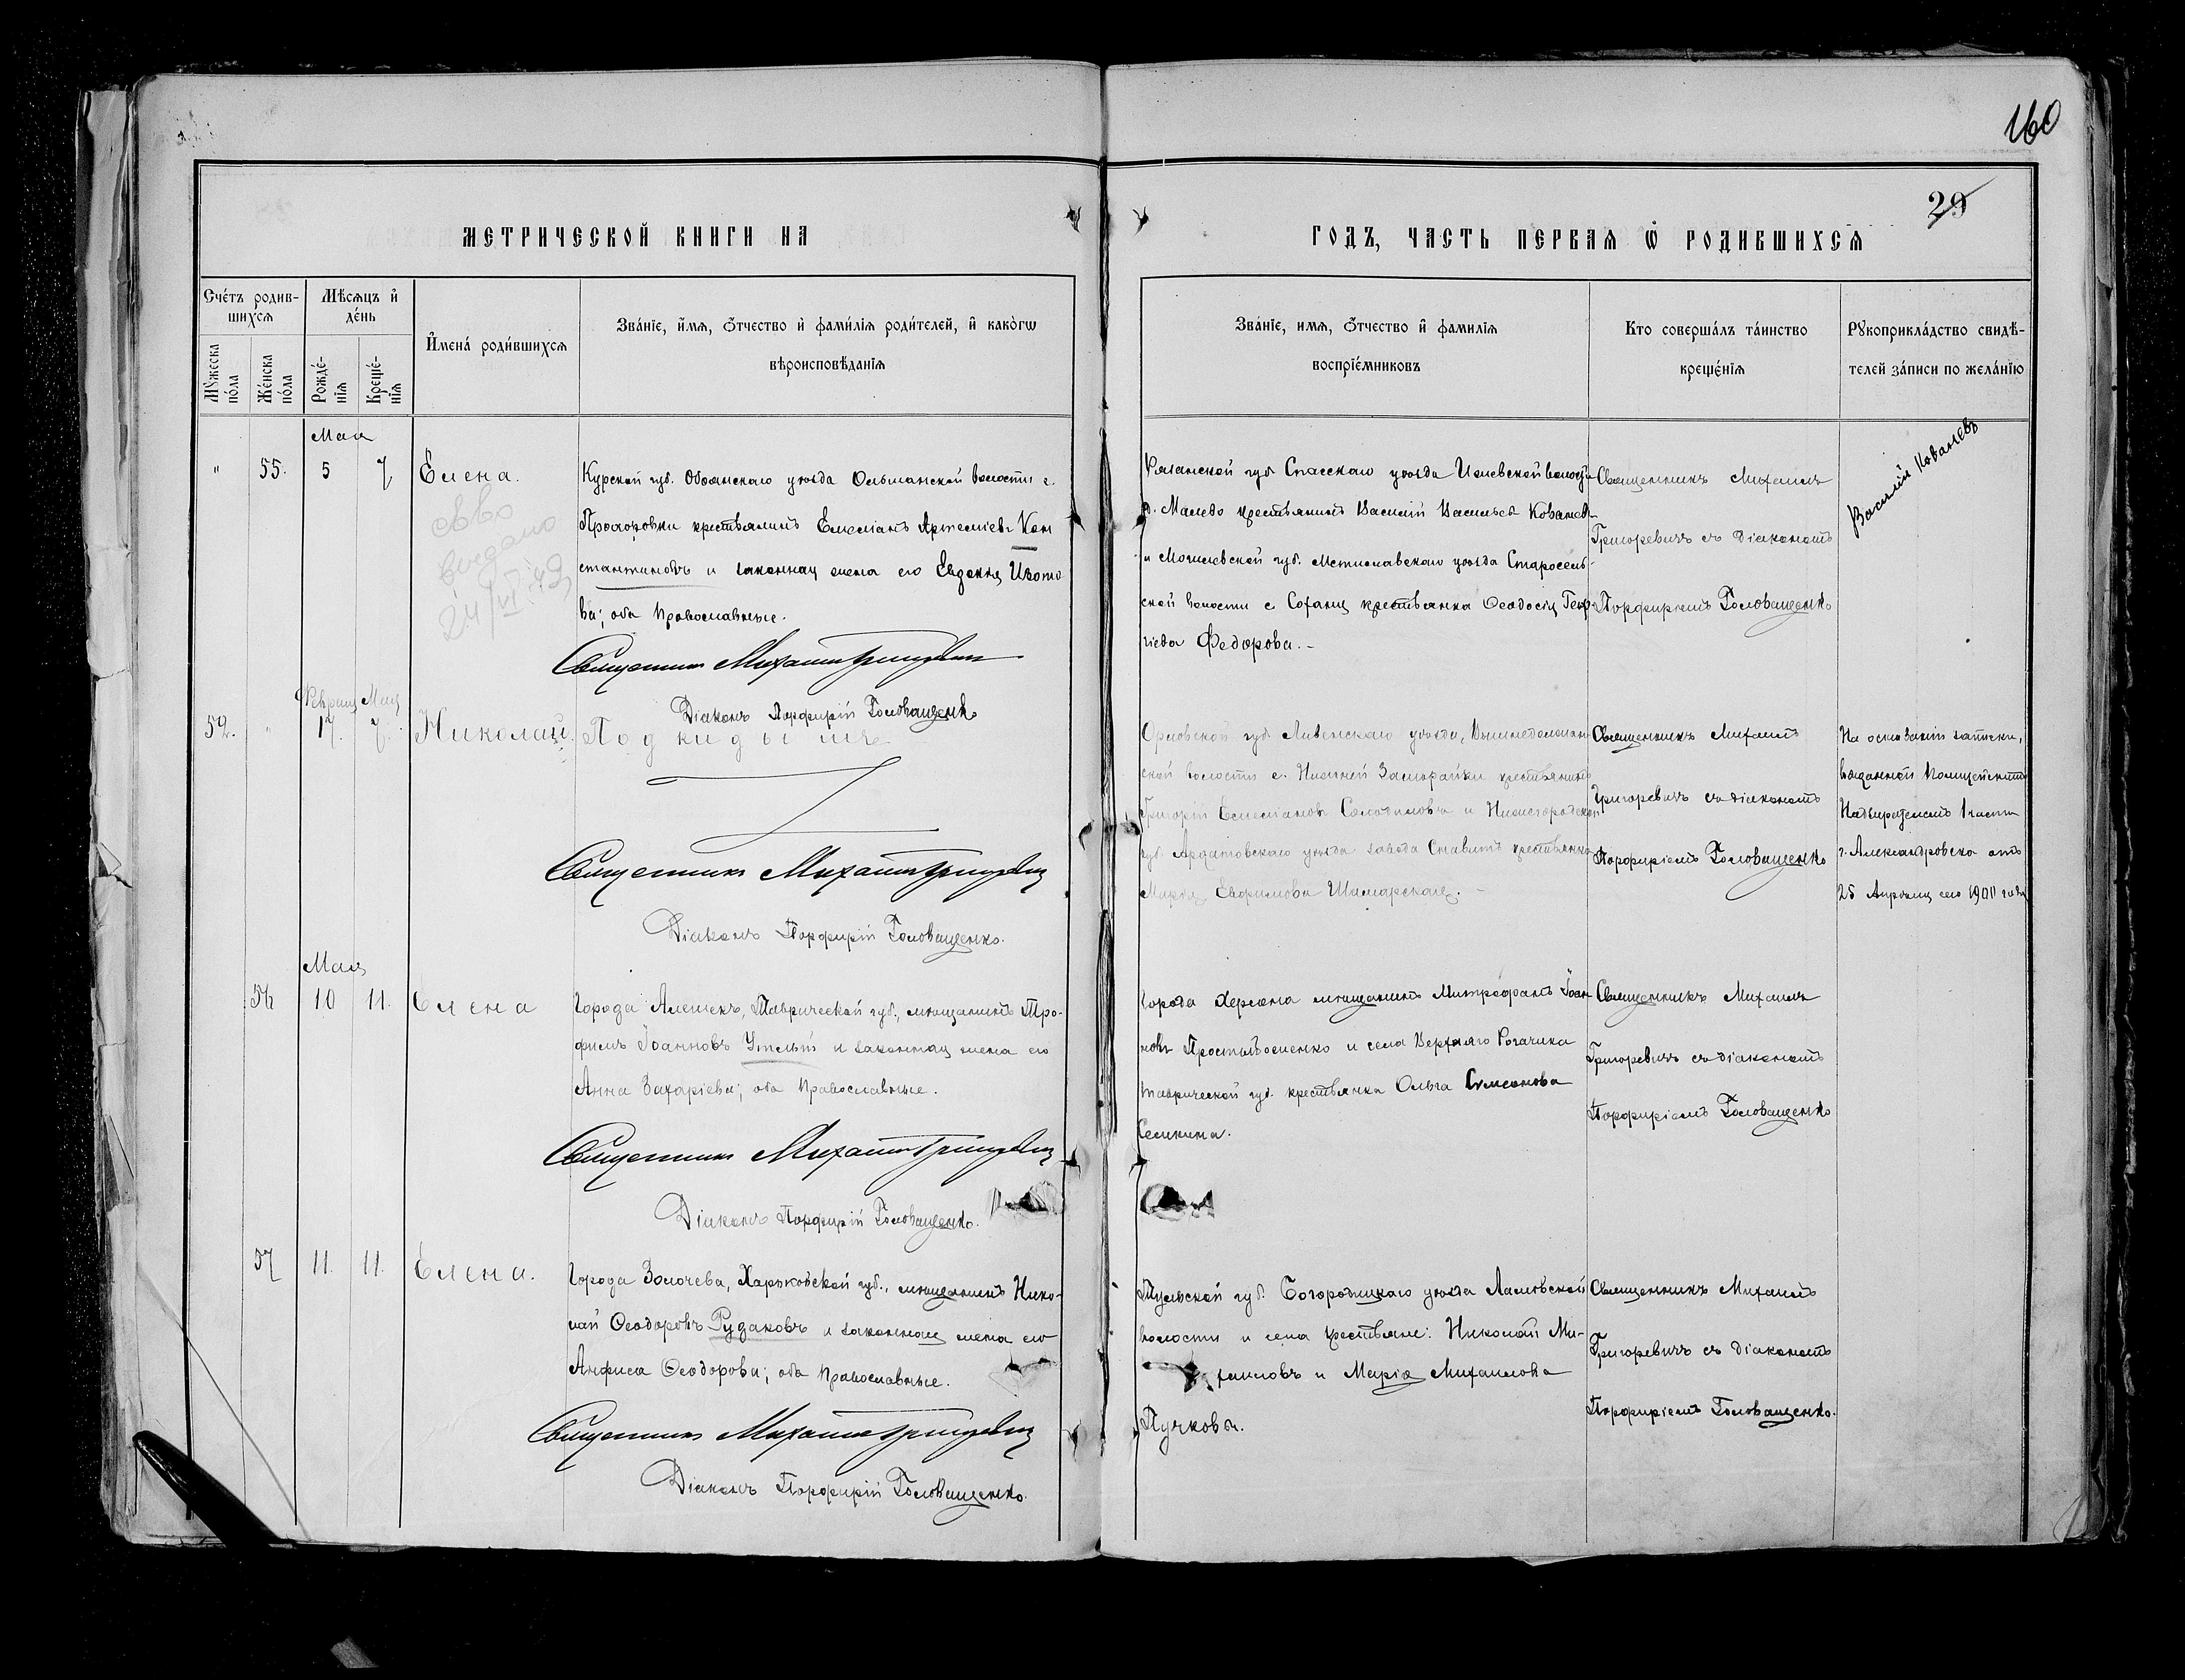 160
29
МЕТРИЧЕСКОЙ КНИГИ НА
ГОДЪ, ЧАСТЬ ПЕРВАЯ Ѡ РОДИВШИХСЯ
Счéтъ родив-
шихся
Мѣсяцъ и
дéнь
Мꙋжеска
пóла
Жéнска
пóла
Рождé-
нїя
Крещé-
нїя
Именá роди́вшихся
Звáнїе, и́мя, ѻ́тчество и фами́лїя роди́телей, и какóгѡ
вѣроисповѣ́данїя
Звáнїе, имя, ѻ́тчество и фамилїя
воспрїéмниковъ
Кто совершáлъ тáинство
крещéнїя
Рꙋкоприклáдство свидѣ-
телей зáписи по желáнїю
Мая
" 55. 5 7 Елена.
Курской губ. Обоянскаго уѣзда Ольшанской волости с.
Прохоровки крестьянинъ Емеліанъ Артеміевъ Кон
стантиновъ и законная жена его Евдокія Изото
ва; оба православные.
Священникъ Михаилъ Григоревичъ
Діаконъ Порфирій Головащенко
выдано
24/VI 49
Рязанской губ Спасскаго уѣзда Ижевской волости
крестьянинъ Василій Васильевъ Ковалевъ
и Могилевской губ. Мстиславскаго уѣзда Старосель-
ской волости с крестьянка Ѳеодосія Геор-
гіева Федорова. -
Священникъ Михаилъ
Григоревичъ съ діакономъ
Порфиріемъ Головащенко
Василій Ковалевъ
Февраля Мая
52. " 17. 7. Николай.
Подкидышъ
Священникъ Михаилъ Григоревичъ
Діаконъ Порфирій Головащенко.
Орловской губ Ливенскаго уѣзда,
ской волости с. Нижней крестьянинъ
Григорій Емеліановъ и Нижегородской
губ Ардатовскаго уѣзда завода крестьянка
Марія Евфимова Шиморская. -
Священникъ Михаилъ
Григоревичъ съ діакономъ
Порфиріемъ Головащенко
На основаніи записки,
выданной Полицейскимъ
Надзирателемъ 1 части
г. Александровска отъ
25 Апрѣля сего 1901 года
Мая
56 10 11. Елена
Города Алешекъ, Таврической губ., мѣщанинъ Тро-
фимъ Іоанновъ и законная жена его
Анна Захаріева; оба православные.
Священникъ Михаилъ Григоревичъ
Діаконъ Порфирій Головащенко.
Города Херсона мѣщанинъ Митрофанъ Іоан-
новъ и села Верхняго Рогачика
Таврической губ. крестьянка Ольга Симеонова
Священникъ Михаилъ
Григоревичъ съ діакономъ
Порфиріемъ Головащенко
57 11. 11. Елена.
Города Золочева, Харьковской губ., мѣщанинъ Нико-
лай Ѳеодоровъ Рудаковъ и законная жена его
Анфиса Ѳеодорова; оба православные.
Священникъ Михаилъ Григоревичъ
Діаконъ Порфирій Головащенко.
Тульской губ. Богородицкаго уѣзда
волости и села крестьяне: Николай Ми-
хаиловъ и Марія Михаилова
Пучковы.
Священникъ Михаилъ
Григоревичъ съ діакономъ
Порфиріемъ Головащенко.